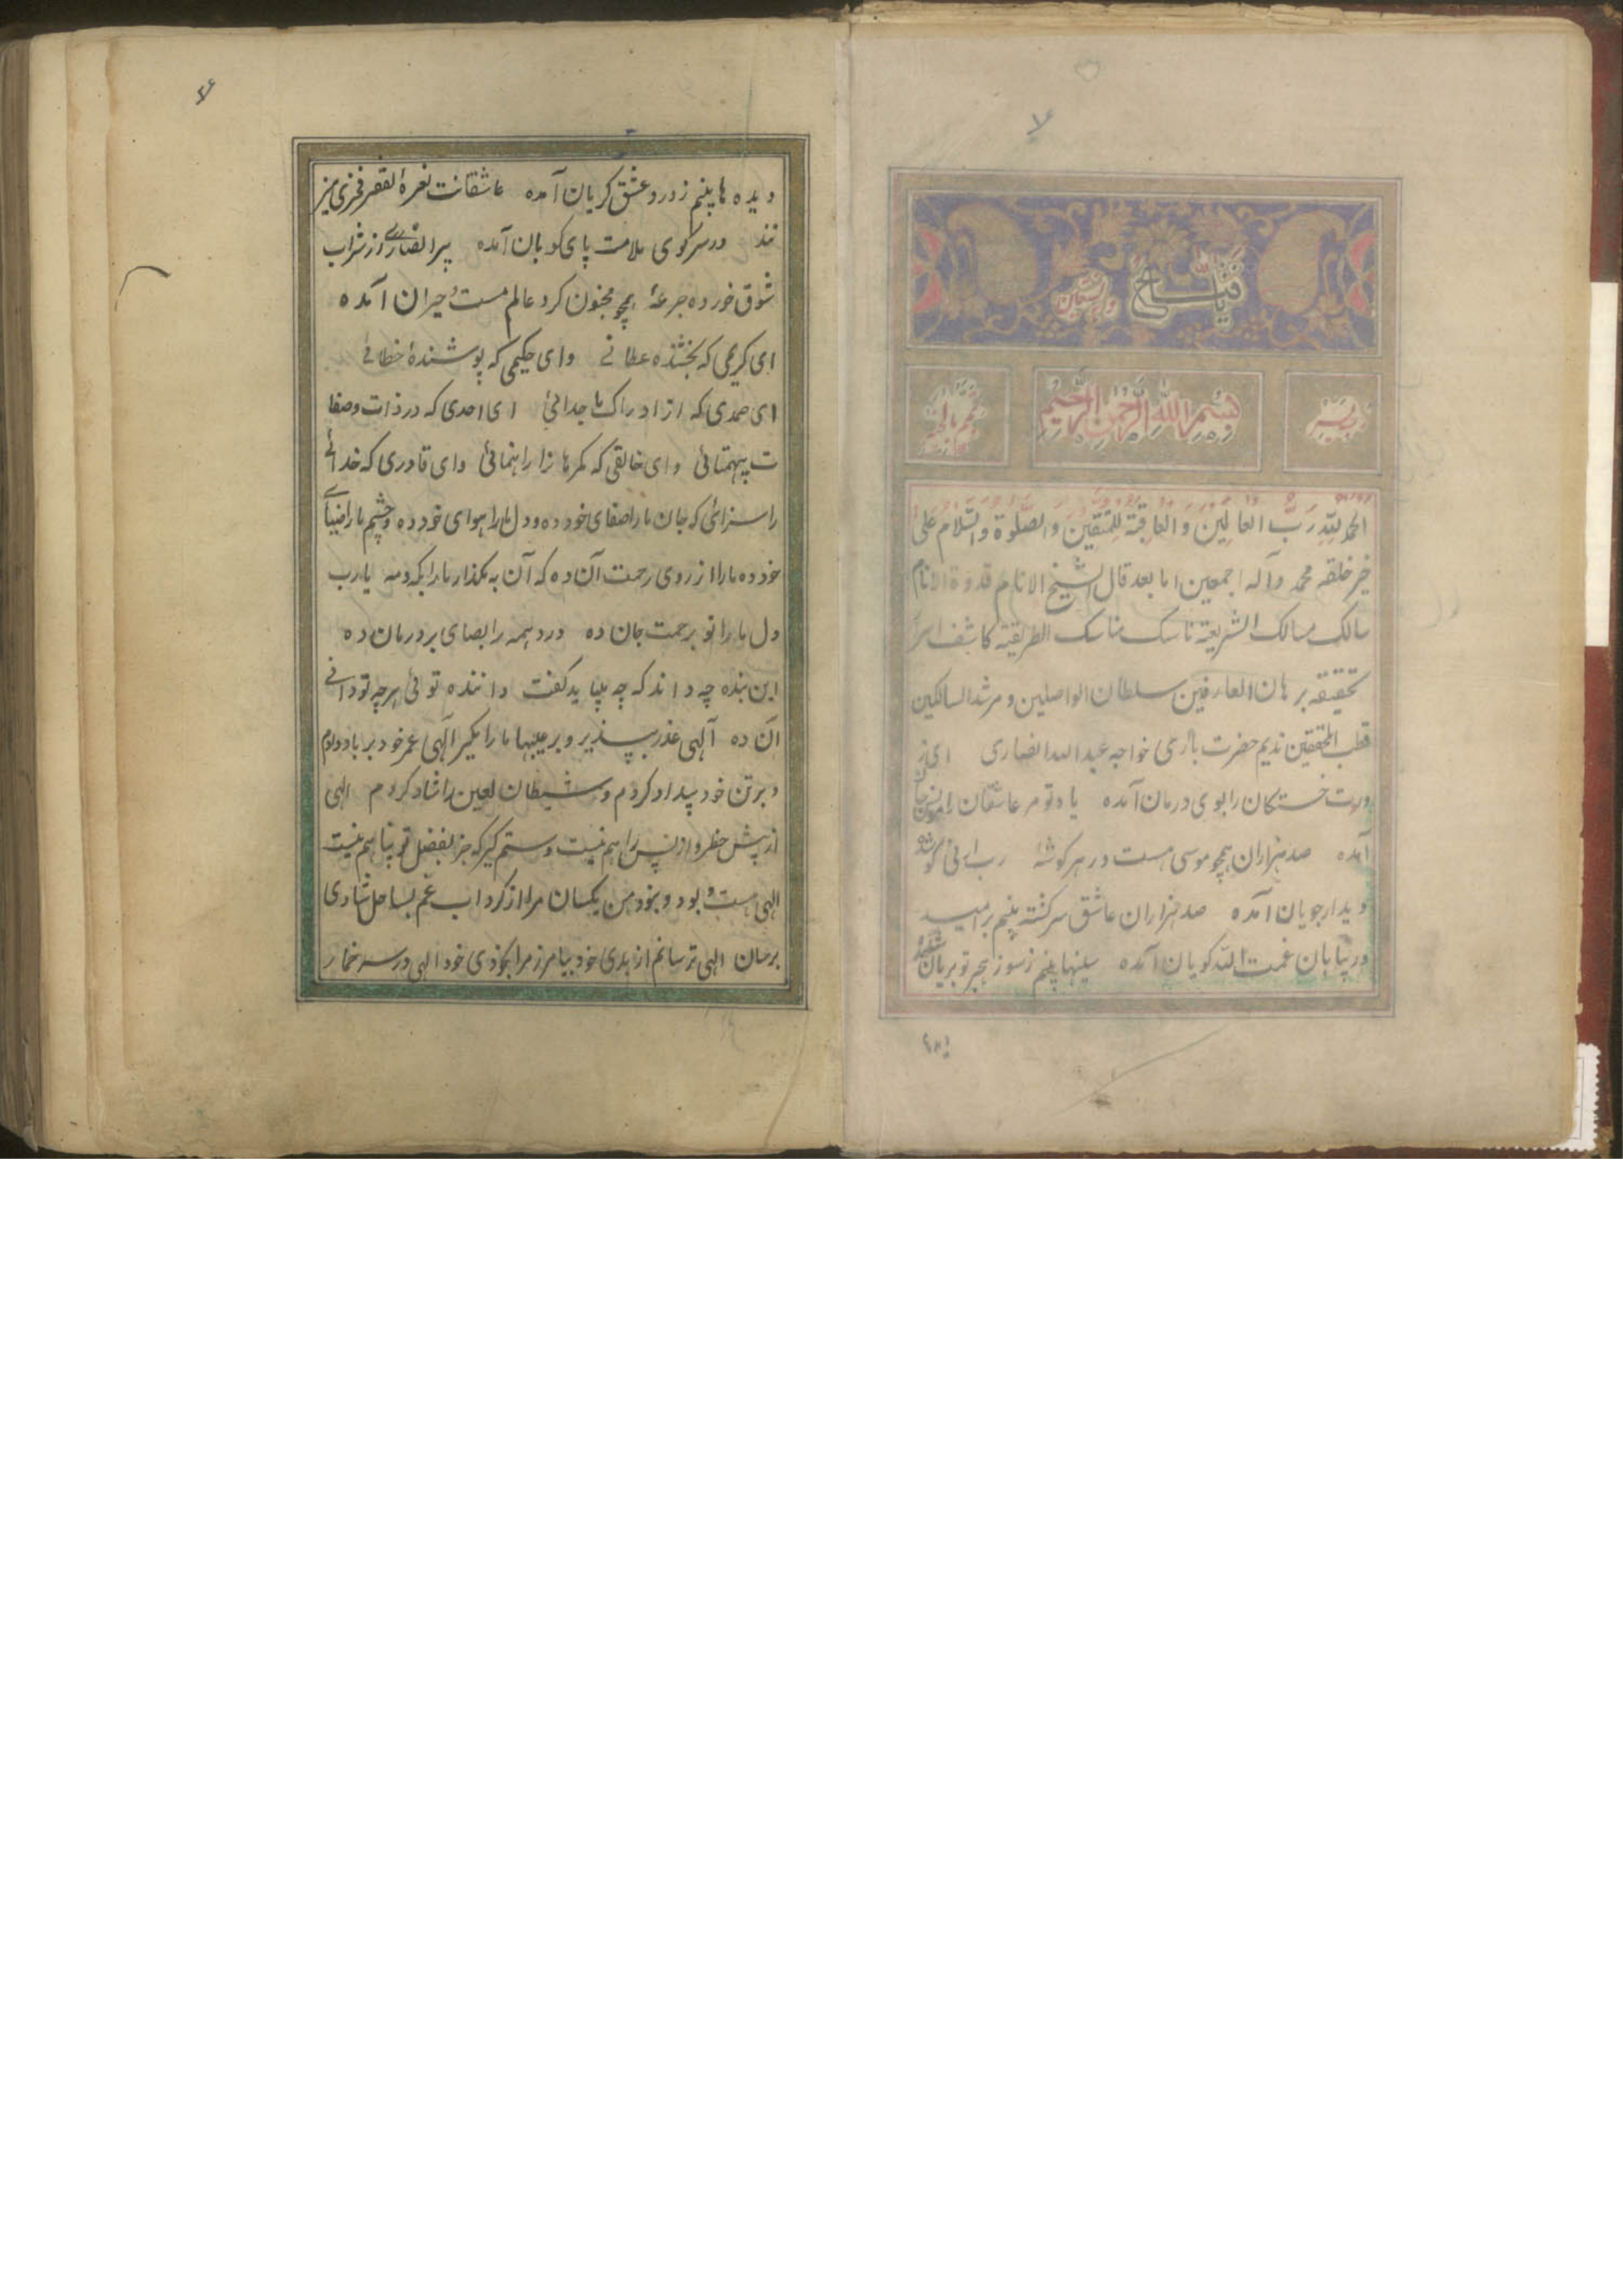 یا فتاح
وبه نستعین
رب یسر
بسم الله الرحمن الرحیم
تمم بالخیر
الحمد لله رَبِّ العالمین و العاقبة للمتقین والصلوة والسلام علی
خیر خلقه محمد وآله اجمعین اما بعد قال الشیخ الانام قدوة الانام
سالک مسالک الشریعة ناسک مناسک الطریقة کاشف اسرار
تحقیقه برهان العارفین سلطان الواصلین و مرشد السالکین
قطب المحققین ندیم حضرت باری خواجه عبدالله انصاری ای ز
دردت خستکان را بوی درمان آمده یاد تو مر عاشقان را مونس جان
آمده صد هزاران همچو موسی مست در هر کوشهٔ رب ارنی کو شده
دیدار جویان آمده صد هزاران عاشق سرکشته بینم بر امید
در بیابان غمت الله کویان آمده سینها بینم ز سوز هجر تو بریان شده
دیده ها بینم ز درد عشق کریان آمده عاشقانت نعرهٔ الفقر فخری میز
نند در سر کوی ملامت پای کوبان آمده پیر انصاری از شراب
شوق خورده جرعهٔ همچو مجنون کرد عالم مست و حیران آمده
ای کریمی که بخشنده عطائی وای حکیمی که پوشندهٔ خطائی
ای صمدی که از ادراک ما جدائی ای احدی که در ذات و صفا
ت بیهمتائی وای خالقی که کمرهانرا راهنمائی وای قادری که خدائی
را سزائی که جان ما را صفای خود ده و دل ما را هوای خود ده و چشم ما را ضیای
خود ده ما را از روی رحمت آن ده که آن به مکذار ما را بکه و مه یا رب
دل ما را تو برحمت جان ده درد همه را بصای بر درمان ده
این بنده چه داند که چه میباید کفت داننده توئی هر چه تو دانی
آن ده آلهی عذر بپذیر و بر عیبهاء ما را مکیر آلهی عمر خود بر باد دادم
و بر تن خود بیداد کردم و شیطان لعین را شاد کردم الهی
از پیش خطر و از پس راهم نیست دستم کیر که جز بفضل تو پناهم نیست
الهی بود و نبود من یکسان مرا از کرداب غم بساحل شادی
برسان الهی ترسانم از بدی خود بیامرز مرا بخودی خود الهی در سر خمار